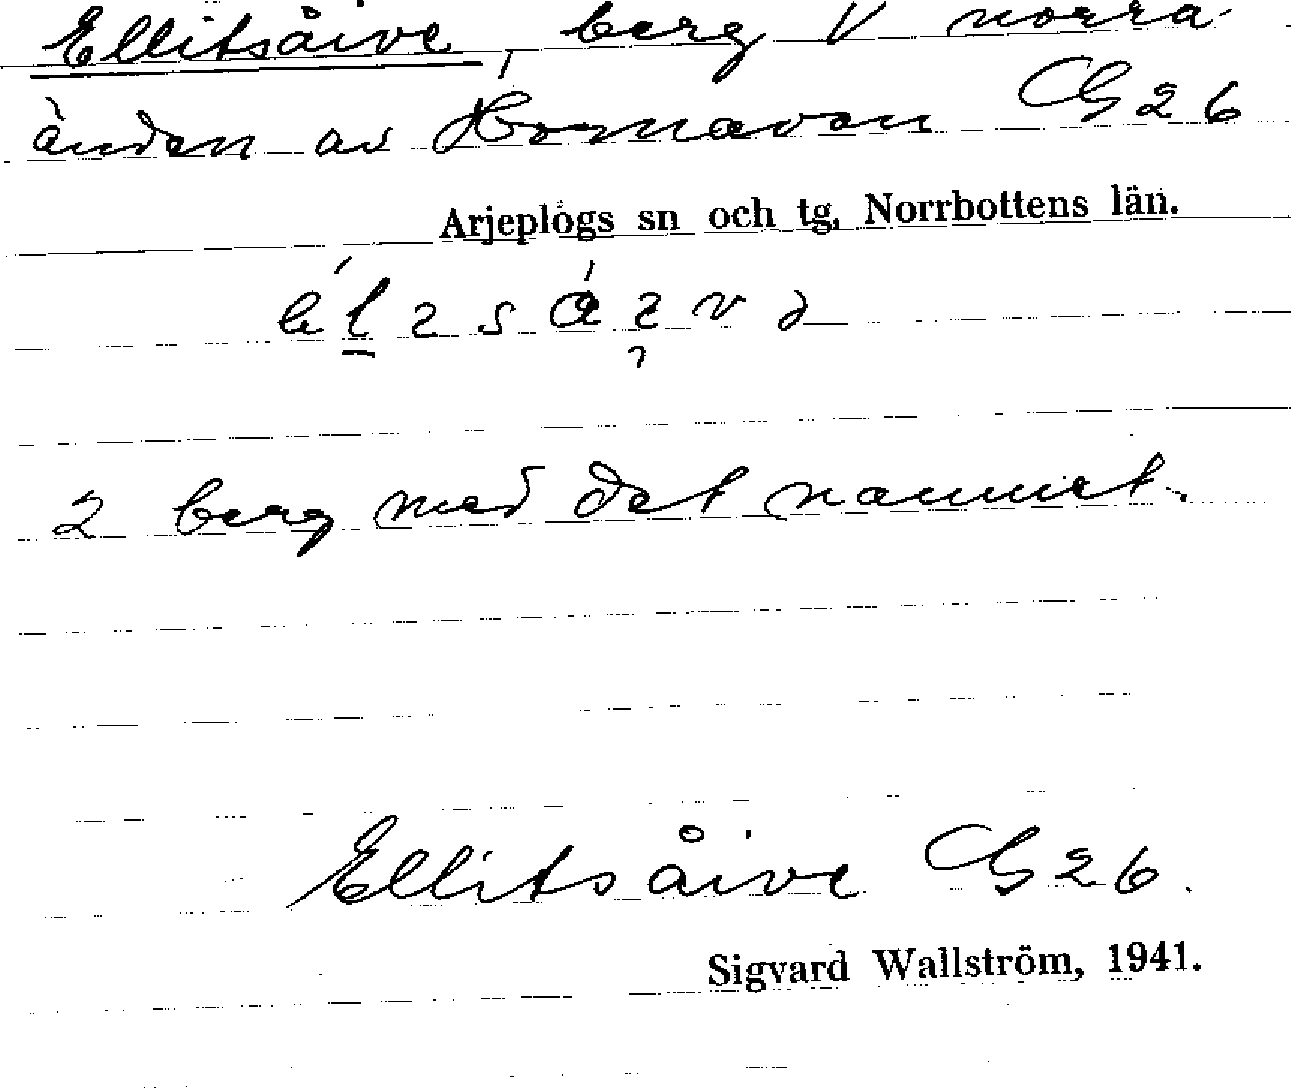 Ellitsåive, berg V norra
änden av Hornavan G 26
Arjeplogs sn och tg, Norrbottens län.
2 berg med det namnet.
Ellitsåive G 26.
Sigvard Wallström, 1941.